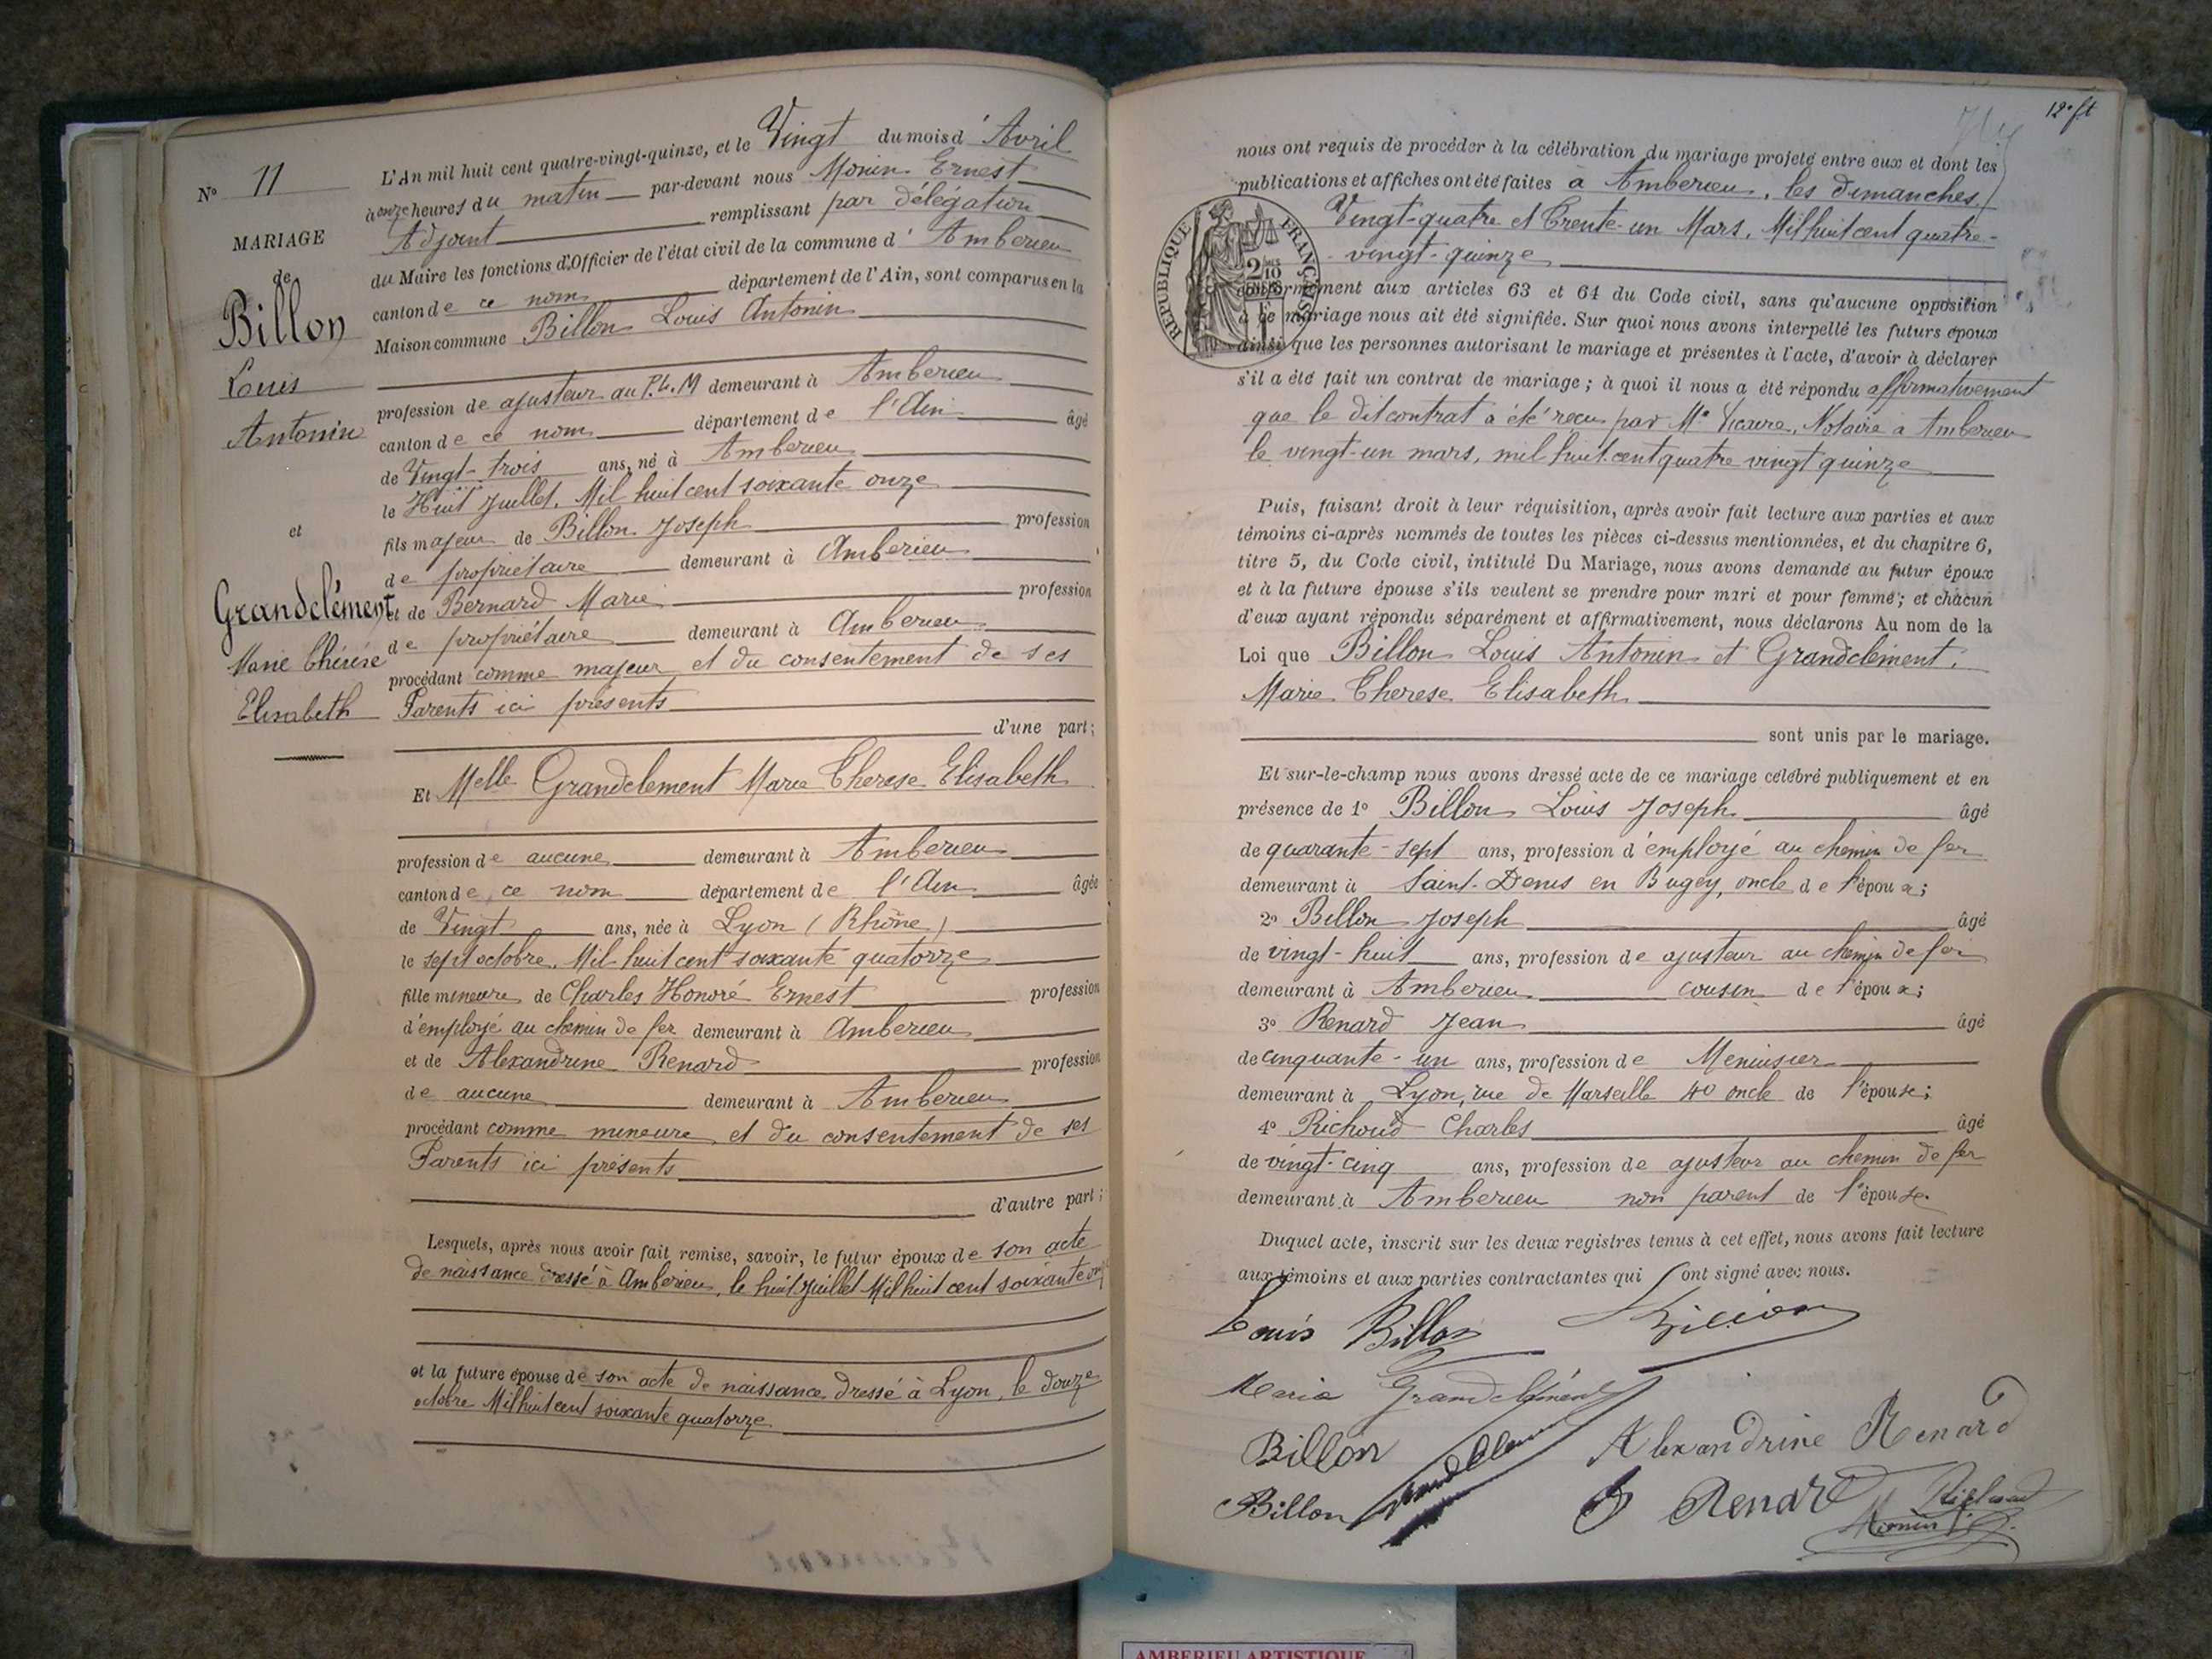 N° 11
MARIAGE
de
Billon
Louis
Antonin
et
Grandclément
Marie Thérèse
Elisabeth
L'An mil huit cent quatre-vingt-quinze, et le Vingt du mois d'Avril
à onze heures du matin par-devant nous Monin Ernest
Adjoint remplissant par délégation
du Maire les fonctions d'Officier de l'état civil de la commune d'Amberieu
canton de ce nom département de l'Ain, sont comparus en la
Maison commune Billon Louis Antonin
profession de ajusteur au P.L.M demeurant à Amberieu
canton de ce nom département de l'Ain âgé
de Vingt-trois ans, né à Amberieu
le Huit Juillet, Mil huit cent soixante onze
fils majeur de Billon Joseph profession
de propriétaire demeurant à Amberieu
et de Bernard Marie profession
de propriétaire demeurant à Amberieu
procédant comme majeur et du consentement de ses
Parents ici présents
d'une part;
Et Melle Grandclement Marie Therese Elisabeth
profession de aucune demeurant à Amberieu
canton de ce nom département de l'Ain âgée
de Vingt ans, née à Lyon (Rhône)
le sept octobre, Mil huit cent soixante quatorze
fille mineure de Charles Honoré Ernest profession
d'employé au chemin de fer demeurant à Amberieu
et de Alexandrine Renard profession
de aucune demeurant à Amberieu
procédant comme mineure et du consentement de ses
Parents ici présents
d'autre part;
Lesquels, après nous avoir fait remise, savoir, le futur époux de son acte
de naissance dressé à Amberieu, le huit Juillet Mil huit cent soixante onze
et la future épouse de son acte de naissance dressé à Lyon, le douze
octobre Mil huit cent soixante quatorze
12e ft
nous ont requis de procéder à la célébration du mariage projeté entre eux et dont les
publications et affiches ont été faites a Amberieu, les dimanches
Vingt-quatre et Trente-un Mars, Mil huit cent quatre-
vingt-quinze
RÉPUBLIQUE FRANÇAISE
2/10
conformément aux articles 63 et 64 du Code civil, sans qu'aucune opposition
à ce mariage nous ait été signifiée. Sur quoi nous avons interpellé les futurs époux
ainsi que les personnes autorisant le mariage et présentes à l'acte, d'avoir à déclarer
s'il a été fait un contrat de mariage; à quoi il nous a été répondu affirmativement
que le dit contrat a été reçu par Me Notaire a Amberieu
le vingt-un mars, mil huit cent quatre vingt quinze
Puis, faisant droit à leur réquisition, après avoir fait lecture aux parties et aux
témoins ci-après nommés de toutes les pièces ci-dessus mentionnées, et du chapitre 6,
titre 5, du Code civil, intitulé Du Mariage, nous avons demandé au futur époux
et à la future épouse s'ils veulent se prendre pour mari et pour femme; et chacun
d'eux ayant répondu séparément et affirmativement, nous déclarons Au nom de la
Loi que Billon Louis Antonin et Grandclément
Marie Therese Elisabeth
sont unis par le mariage.
Et sur-le-champ nous avons dressé acte de ce mariage célébré publiquement et en
présence de 1° Billon Louis Joseph âgé
de quarante-sept ans, profession d'employé au chemin de fer
demeurant à Saint-Denis en Bugey, oncle de l'époux;
2° Billon Joseph âgé
de vingt-huit ans, profession de ajusteur au chemin de fer
demeurant à Amberieu cousin de l'époux;
3° Renard Jean âgé
de cinquante-un ans, profession de Menuisier
demeurant à Lyon, rue de Marseille 40 oncle de l'épouse;
4° Richoud Charles âgé
de vingt-cinq ans, profession de ajusteur au chemin de fer
demeurant à Amberieu non parent de l'épouse.
Duquel acte, inscrit sur les deux registres tenus à cet effet, nous avons fait lecture
aux témoins et aux parties contractantes qui ont signé avec nous.
Louis Billon Billon
Maria Grandclément
Billon Grandclément Alexandrine Renard
Billon J Renard Richoud
Monin
AMBERIEU ARTISTIQUE